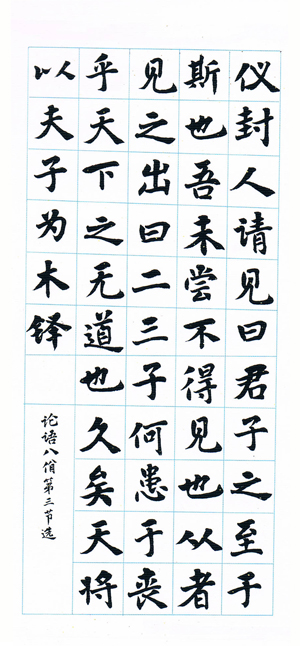 仪封人请见曰君子之至于
斯也吾未尝不得见也从者
见之出曰二三子何患于丧
乎天下之无道也久矣天将
以夫子为木铎
论语八佾第三节选